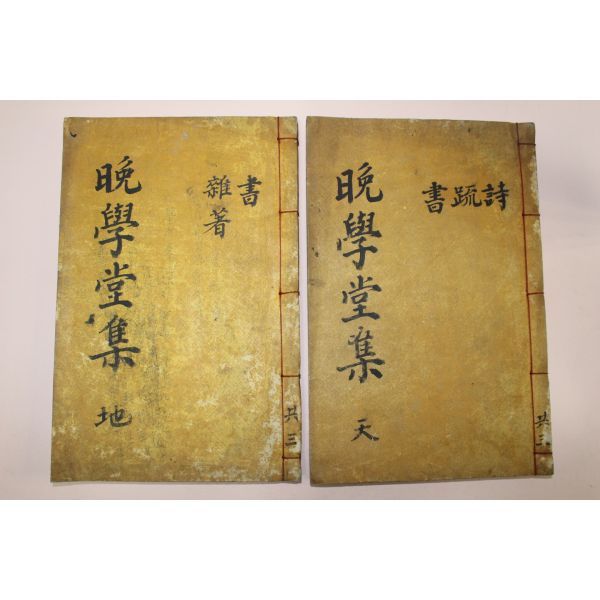 晚學堂集 地
書
雜著
共三
晚學堂集 天
詩
疏
書
共三